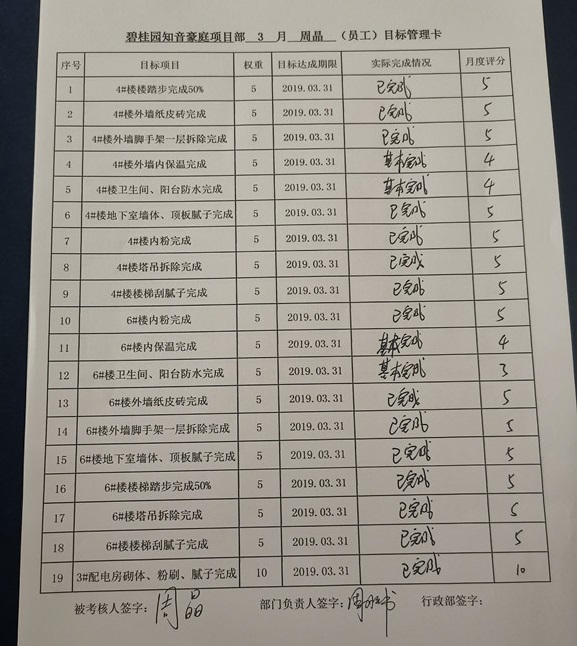 碧桂园知音豪庭项目部 3 月 周晶 （员工）目标管理卡
序号 目标项目 权重 目标达成期限 实际完成情况 月度评分
1 4#楼楼踏步完成50% 5 2019.03.31 已完成 5
2 4#楼外墙纸皮砖完成 5 2019.03.31 已完成 5
3 4#楼外墙脚手架一层拆除完成 5 2019.03.31 已完成 5
4 4#楼外墙内保温完成 5 2019.03.31 基本完成 4
5 4#楼卫生间、阳台防水完成 5 2019.03.31 基本完成 4
6 4#楼地下室墙体、顶板腻子完成 5 2019.03.31 已完成 5
7 4#楼内粉完成 5 2019.03.31 已完成 5
8 4#楼塔吊拆除完成 5 2019.03.31 已完成 5
9 4#楼楼梯刮腻子完成 5 2019.03.31 已完成 5
10 6#楼内粉完成 5 2019.03.31 已完成 5
11 6#楼内保温完成 5 2019.03.31 基本完成 4
12 6#楼卫生间、阳台防水完成 5 2019.03.31 基本完成 3
13 6#楼外墙纸皮砖完成 5 2019.03.31 已完成 5
14 6#楼外墙脚手架一层拆除完成 5 2019.03.31 已完成 5
15 6#楼地下室墙体、顶板腻子完成 5 2019.03.31 已完成 5
16 6#楼楼梯踏步完成50% 5 2019.03.31 已完成 5
17 6#楼塔吊拆除完成 5 2019.03.31 已完成 5
18 6#楼楼梯刮腻子完成 5 2019.03.31 已完成 5
19 3#配电房砌体、粉刷、腻子完成 10 2019.03.31 已完成 10
被考核人签字：周晶 部门负责人签字：周 行政部签字：